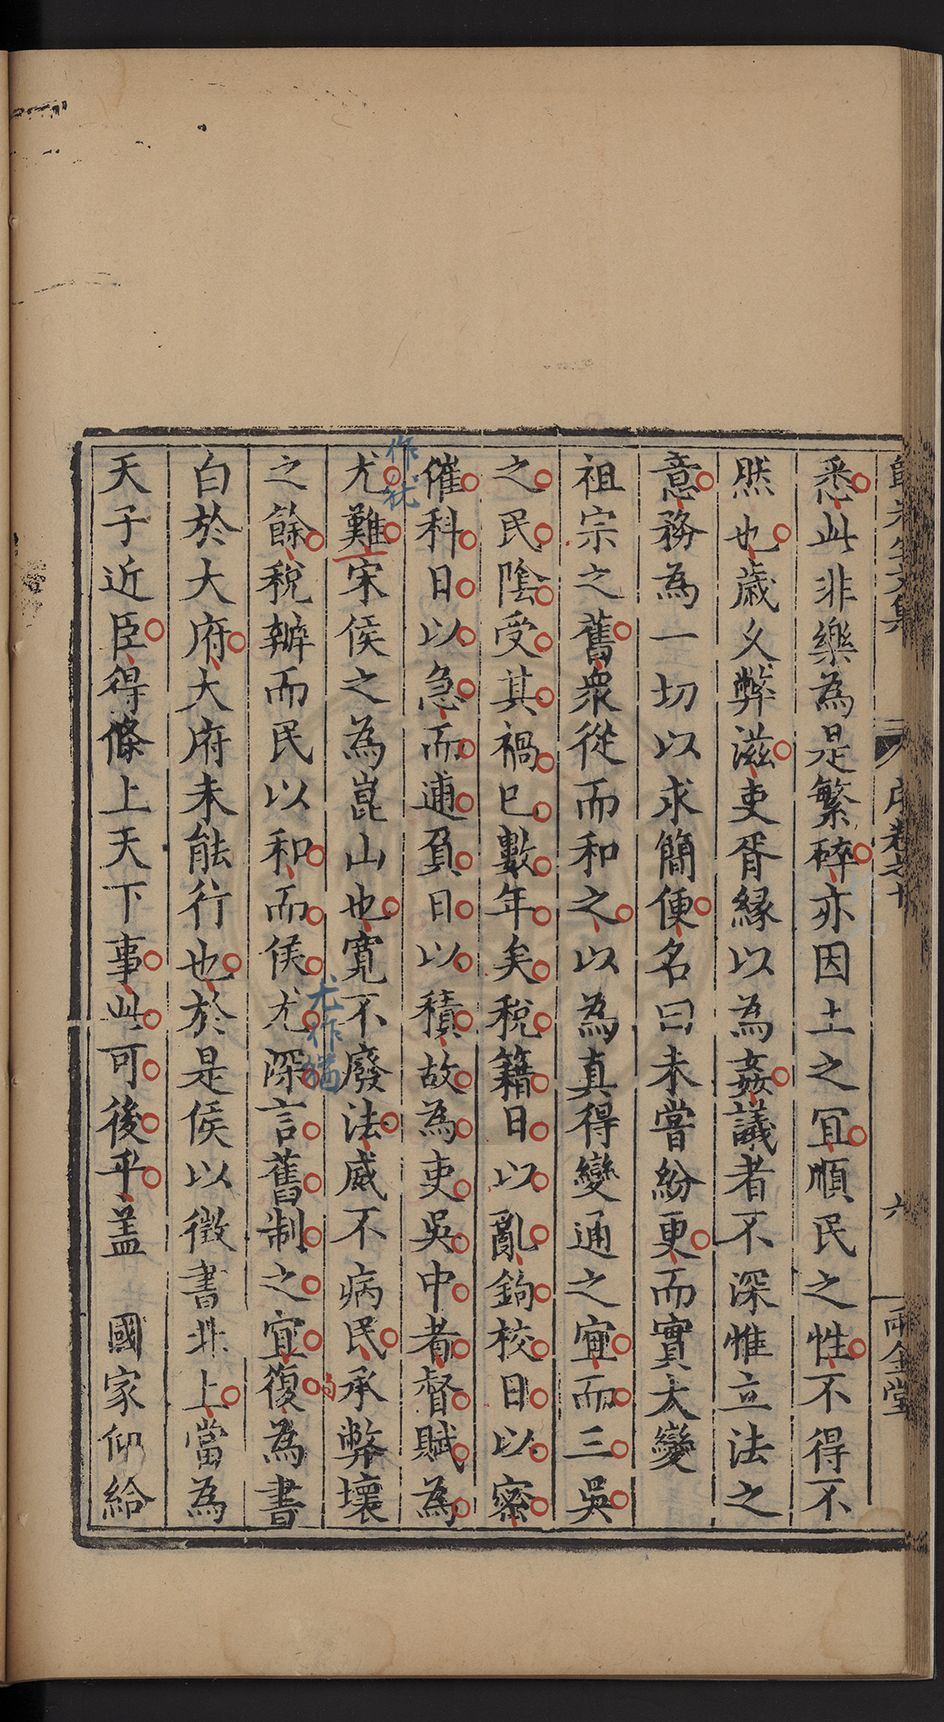 悉此非樂為是繁碎亦因土之冝順民之性不得不
然也歲乆弊滋吏胥緣以為姦議者不深惟立法之
意務為一切以求簡便名曰未嘗紛更而實大變
祖宗之舊衆從而和之以為真得變通之宜而三吳
之民陰受其禍已數年矣稅籍日以亂鉤校日以密
催科日以急而逋負日以積故為吏吳中者督賦為
尤難宋侯之為崑山也寬不廢法威不病民承弊壞
作戓
之餘稅辦而民以和而侯尤深言舊制之宜復為書
尤作猶
白於大府大府未能行也於是侯以徵書北上當為
天子近臣得條上天下事此可後乎盖　國家仰給
六
兩金堂